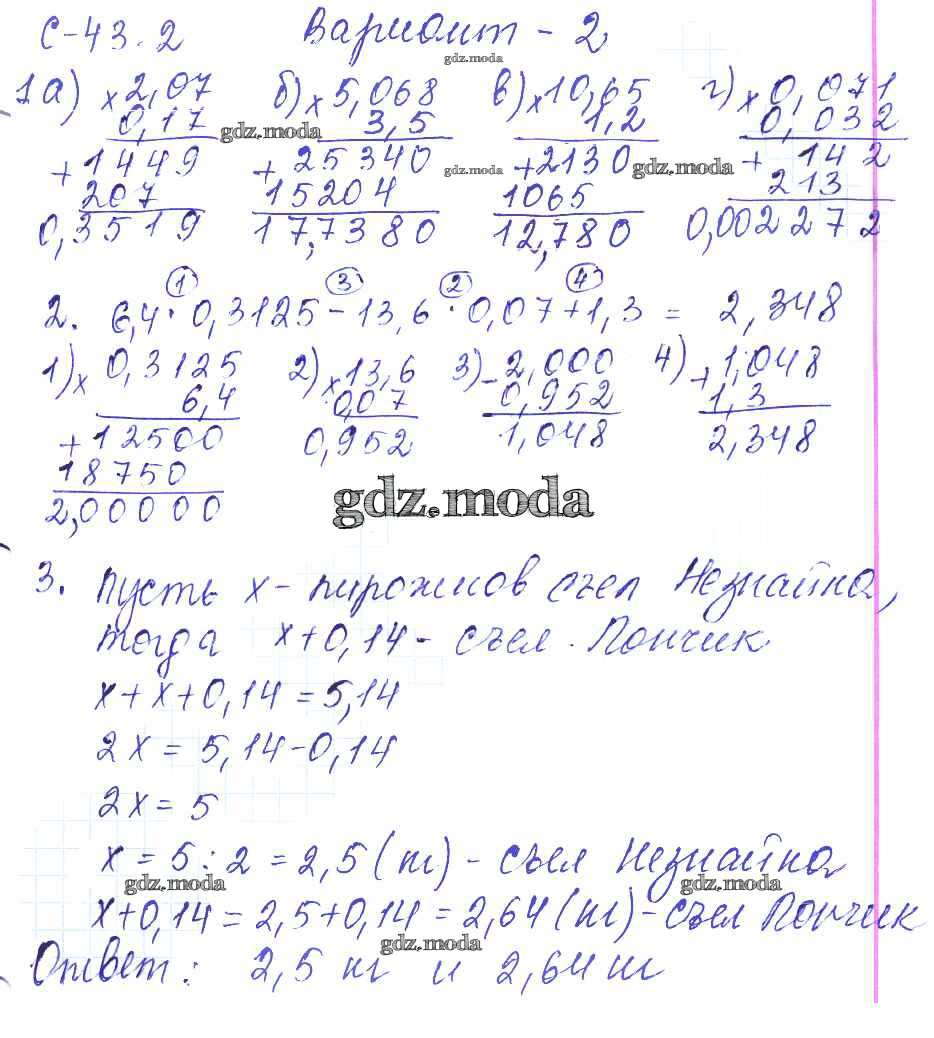 С-43.2 Вариант - 2
gdz.moda
1а) × 2,07 б) × 5,068 в) × 10,65 г) × 0,071
0,17 3,5 1,2 0,032
gdz.moda
+ 1449 + 25340 + 2130 + 142
gdz.moda gdz.moda gdz.moda
207 15204 1065 213
0,3519 17,7380 12,780 0,002272
1 3 2 4
2. 6,4 · 0,3125 - 13,6 · 0,07 + 1,3 = 2,348
1) × 0,3125 2) × 13,6 3) - 2,000 4) + 1,048
6,4 0,07 0,952 1,3
+ 12500 0,952 1,048 2,348
18750
2,00000
gdz.moda
3. Пусть х - пирожков съел Незнайка,
тогда х+0,14 - съел Пончик
х + х + 0,14 = 5,14
2х = 5,14 - 0,14
2х = 5
х = 5 : 2 = 2,5 (кг) - съел Незнайка
gdz.moda gdz.moda
х+0,14 = 2,5+0,14 = 2,64 (кг) - съел Пончик
gdz.moda
Ответ: 2,5 кг и 2,64 кг